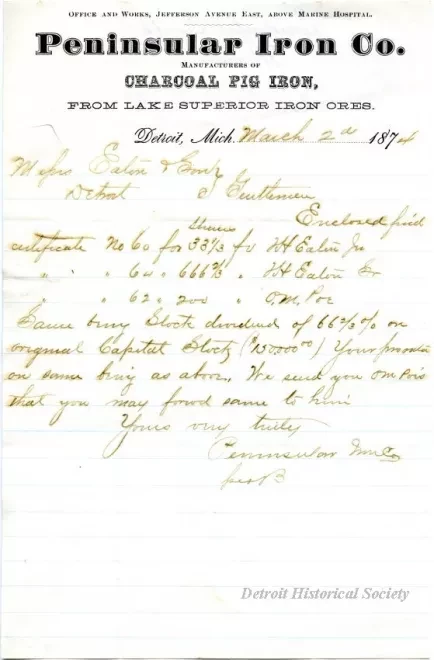 Office and Works, Jefferson Avenue East, above Marine Hospital.
Peninsular Iron Co.
Manufacturers of
CHARCOAL PIG IRON,
FROM LAKE SUPERIOR IRON ORES.
Detroit, Mich. March 2d 1874
Messrs Eaton &
Detroit Gentlemen
Enclosed find
shares
certificate No 60 for 33⅓ for TH Eaton Jr
" " " " 666⅔ " TH Eaton Sr
" " " 62 " 200 " O.M. Poe
Same being Stock dividend of 66⅔% on
original Capital Stock ($150,000.00) Your
on same being as above. We send you
that you may forwd same to him
Yours very truly
Peninsular Iron Co
per B
Detroit Historical Society